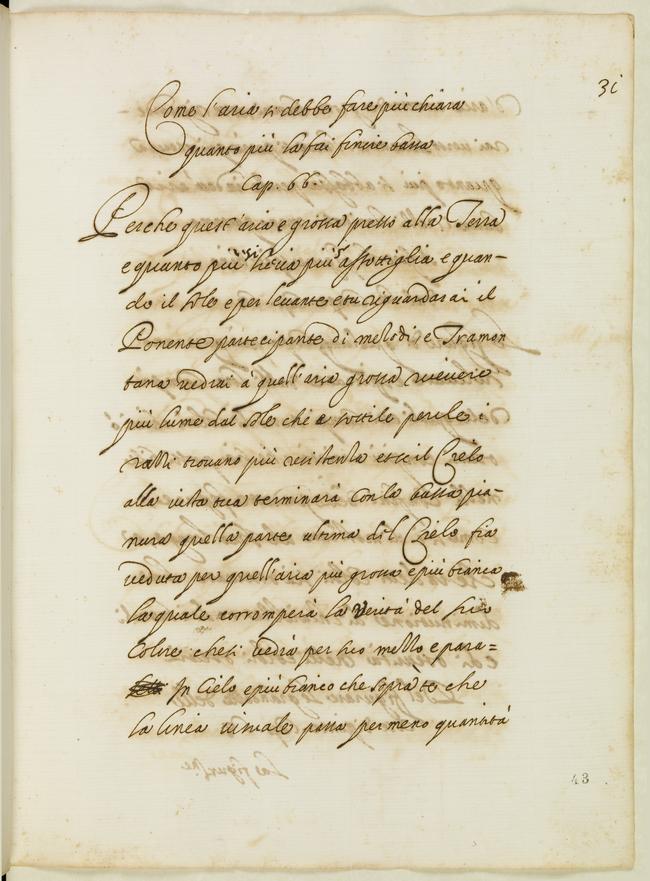 31
Come l'aria si debbe fare più chiara
quanto più la fai finire bassa
Cap. 66
Perche quest'aria e grossa presso alla Terra
e quanto più si lieva più s'assottiglia e quan-
do il sole e per levante e tu riguardarai il
Ponente partecipante di mezodi, e Tramon
tana vedrai a quell'aria grossa ricevere
più lume dal sole che a sottile perche i
razzi trovano più resistenza et se il Cielo
alla vista tua terminarà con la bassa pia-
nura quella parte ultima del Cielo fia
veduta per quell'aria più grossa e più bianca
la quale corromperà la verità del suo
Colore che si vedrà per suo mezzo e para=
In Cielo e più bianco che soprà te che
la linea visuale passa per meno quantità
43